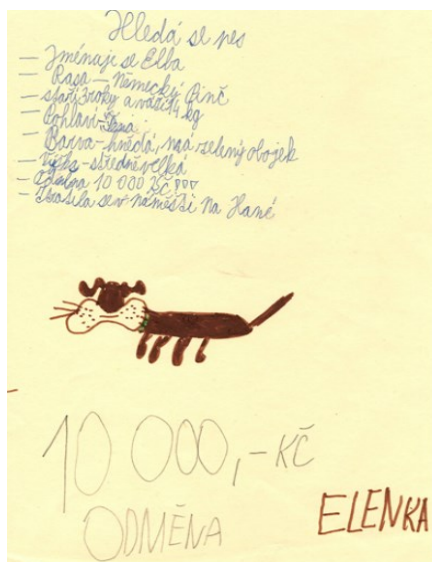 Hledá se pes
— Jménuje se Elba
— Rasa — Německý Pinč
— stáří 3 roky a váží 14 kg
— Pohlaví-
— Barva-hnědá, má zelený obojek
— Výška-středně velká
— Odměna 10 000 Kč !!!
— Ztratila se v náměšti Na Hané
10 000,- KČ
ODMĚNA
ELENKA